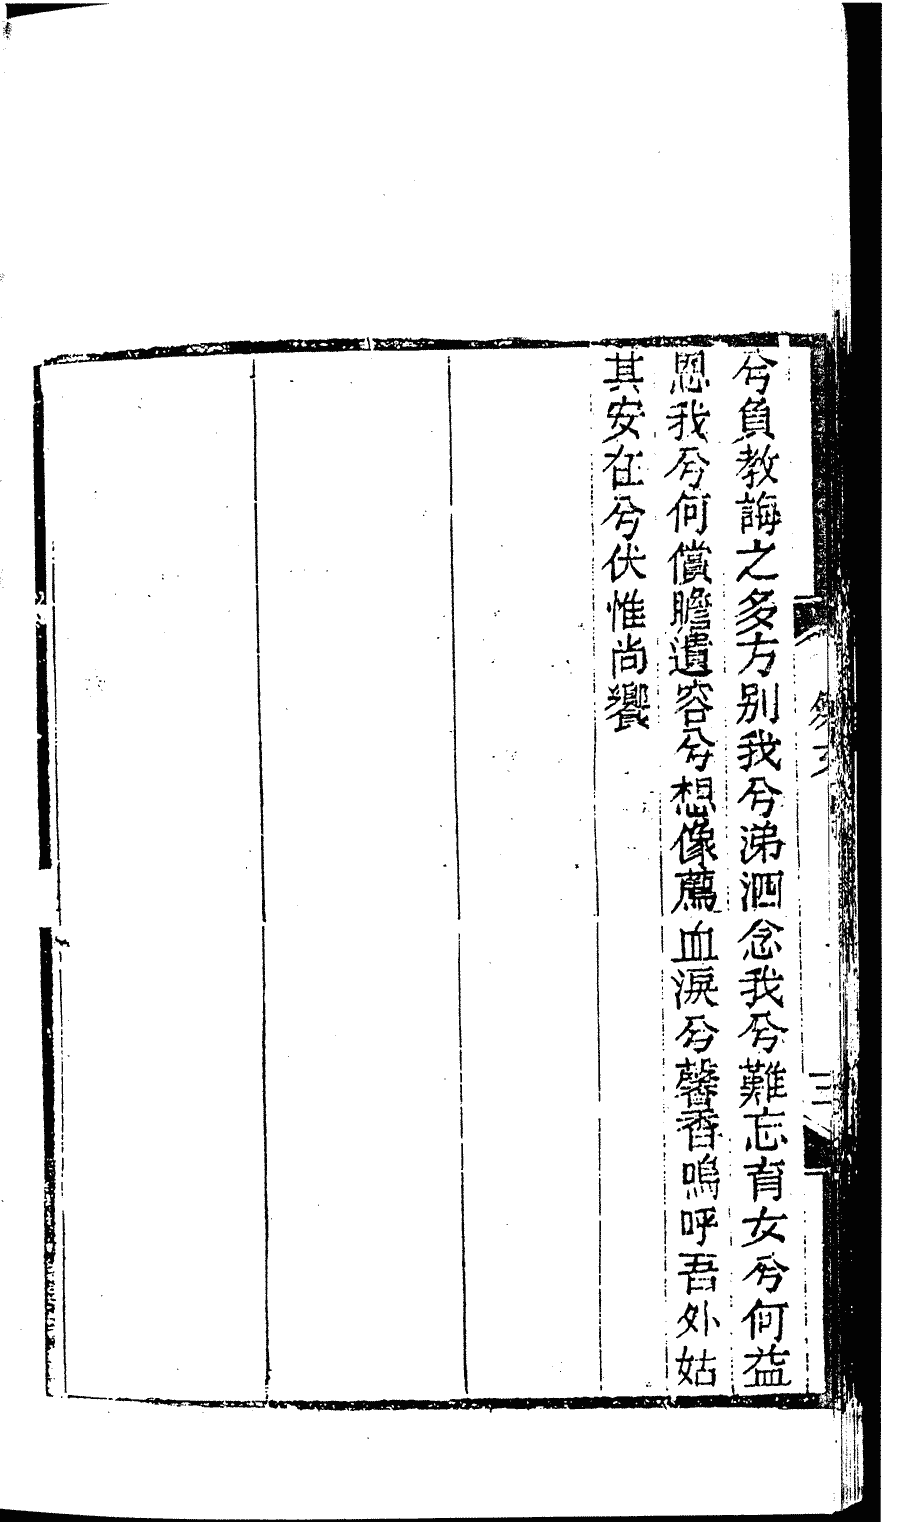 兮負教誨之多方别我兮涕泗念我兮難忘育女兮何益
恩我兮何償瞻遺容兮想像薦血淚兮馨香嗚呼吾外姑
其安在兮伏惟尚饗